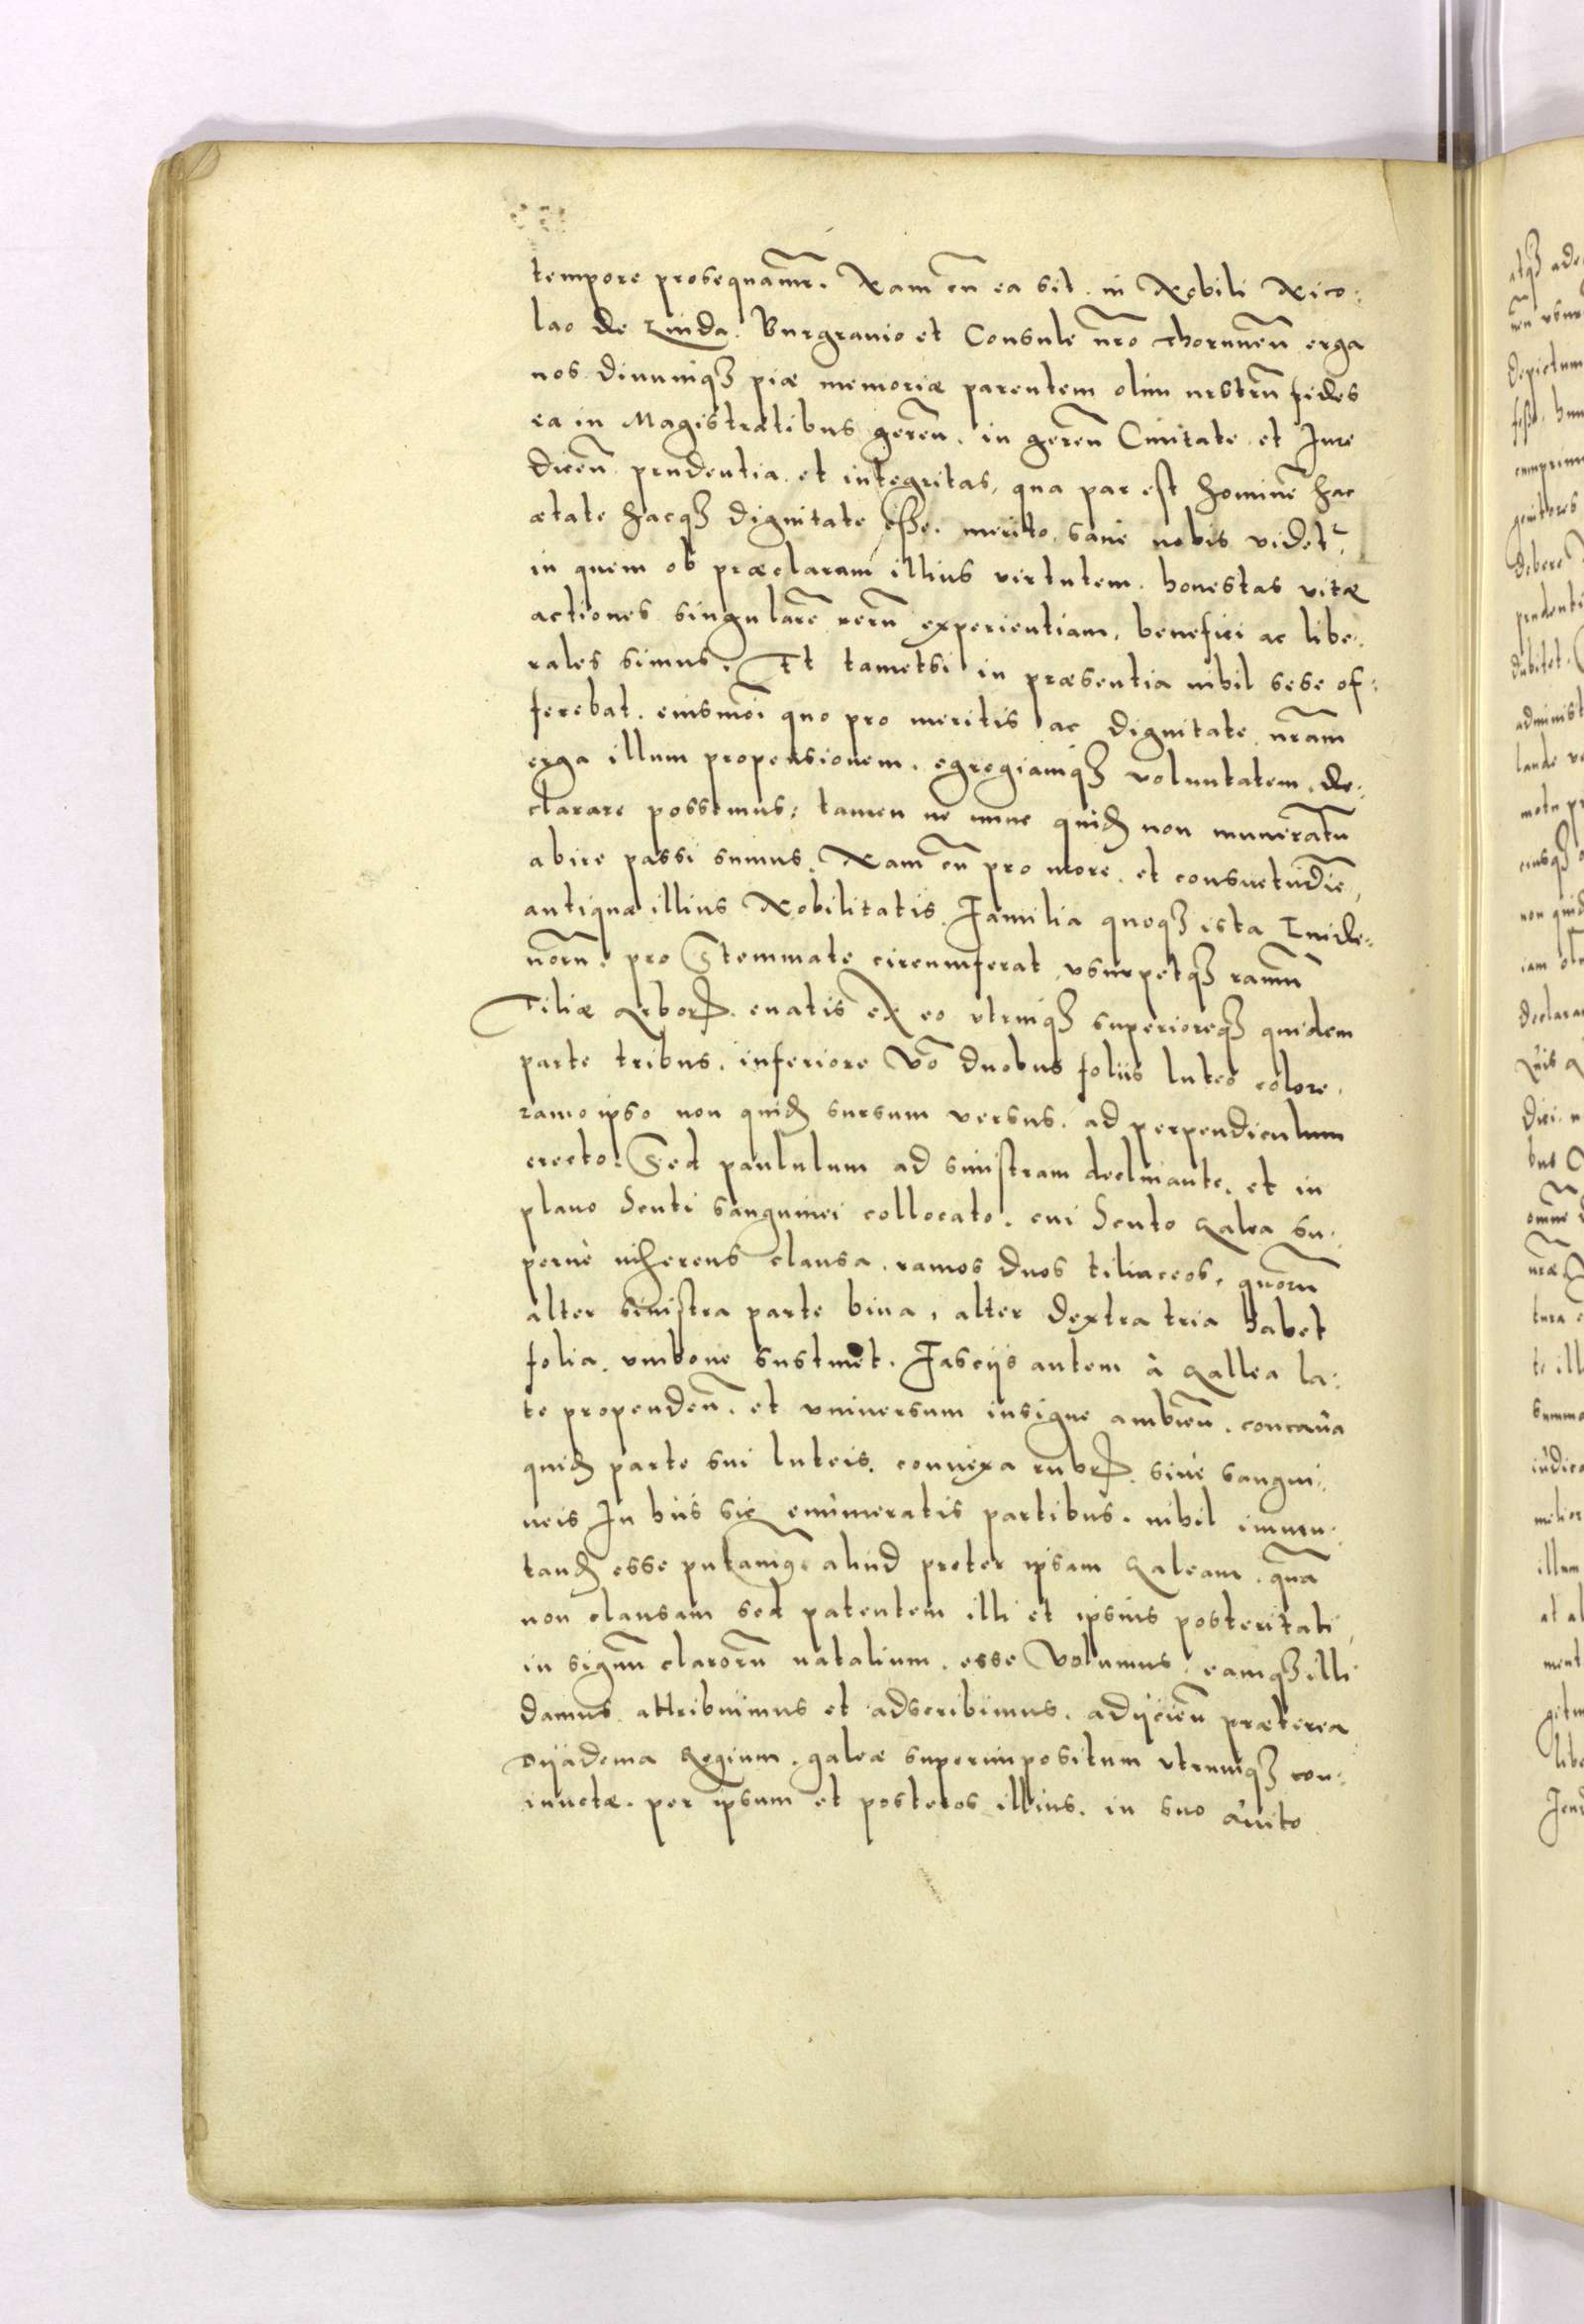 tempore prosequamr̃. Nam cũ ea sit in Nobili Nico:
lao de Linda. Burgrauio et Consule nr̃o Thorunen̄ erga
nos. diuumq₃ piæ memoriæ parentem olim nostrũ fides
ea in Magistratibus geren̄. in geren̄ Ciuitate et Jure
dicen̄ prudentia et integritas, qua par est hominẽ hac
ætate hacq₃ dignitate esse. merito sane nobis videt᷑.
in quem ob præclaram illius virtutem. honestas vitæ
actiones singularẽ rerũ experientiam, benefici ac libe:
rales simus. Et tametsi in præsentia nihil sese of:
ferebat. eiusmõi quo pro meritis ac dignitate nr̃am
erga illum propensionem. egregiamq₃ voluntatem de:
clarare possemus: tamen ne nunc quid₃ non muneratũ
abire passi sumus. Nam cũ pro more. et consuetudĩe
antiquæ illius Nobilitatis. Familia quoq₃ ista Linde:
norũ. pro Stemmate circumferat vsurpetq₃ ramũ
Tiliæ arboris. enatis ex eo vtrinq₃ superioreq₃ quidem
parte tribus. inferiore Võ duobus foliis luteo colore.
ramo ipso non quid₃ sursum versus. ad perpendiculum
erecto. Sed paululum ad sinistram declinante. et in
plano Scuti sanguinei collocato. cui Scuto galea su:
perne inherens clausa. ramos duos tiliaceos. quorũ
alter sinistra parte bina, alter dextra tria habet
folia. vmbone sustinet. Fascijs autem à gallea la:
te propenden̄. et vniuersum insigne ambien̄. concaua
quid₃ parte sui luteis. conuexa rubris. siue sangui:
neis In hiis sic enumeratis partibus. nihil immu:
tand₃ esse putamus aliud preter ipsam galeam. quã
non clausam sed patentem illi et ipsius posteritati
in signũ clarorũ natalium. esse Volumus. eamq₃ illi
damus attribuimus et adscribimus. adijcien̄ præterea
Dijadema Regium. galeæ superimpositum vtrumq₃ con:
iunctæ. per ipsum et posteros illius. in suo auito